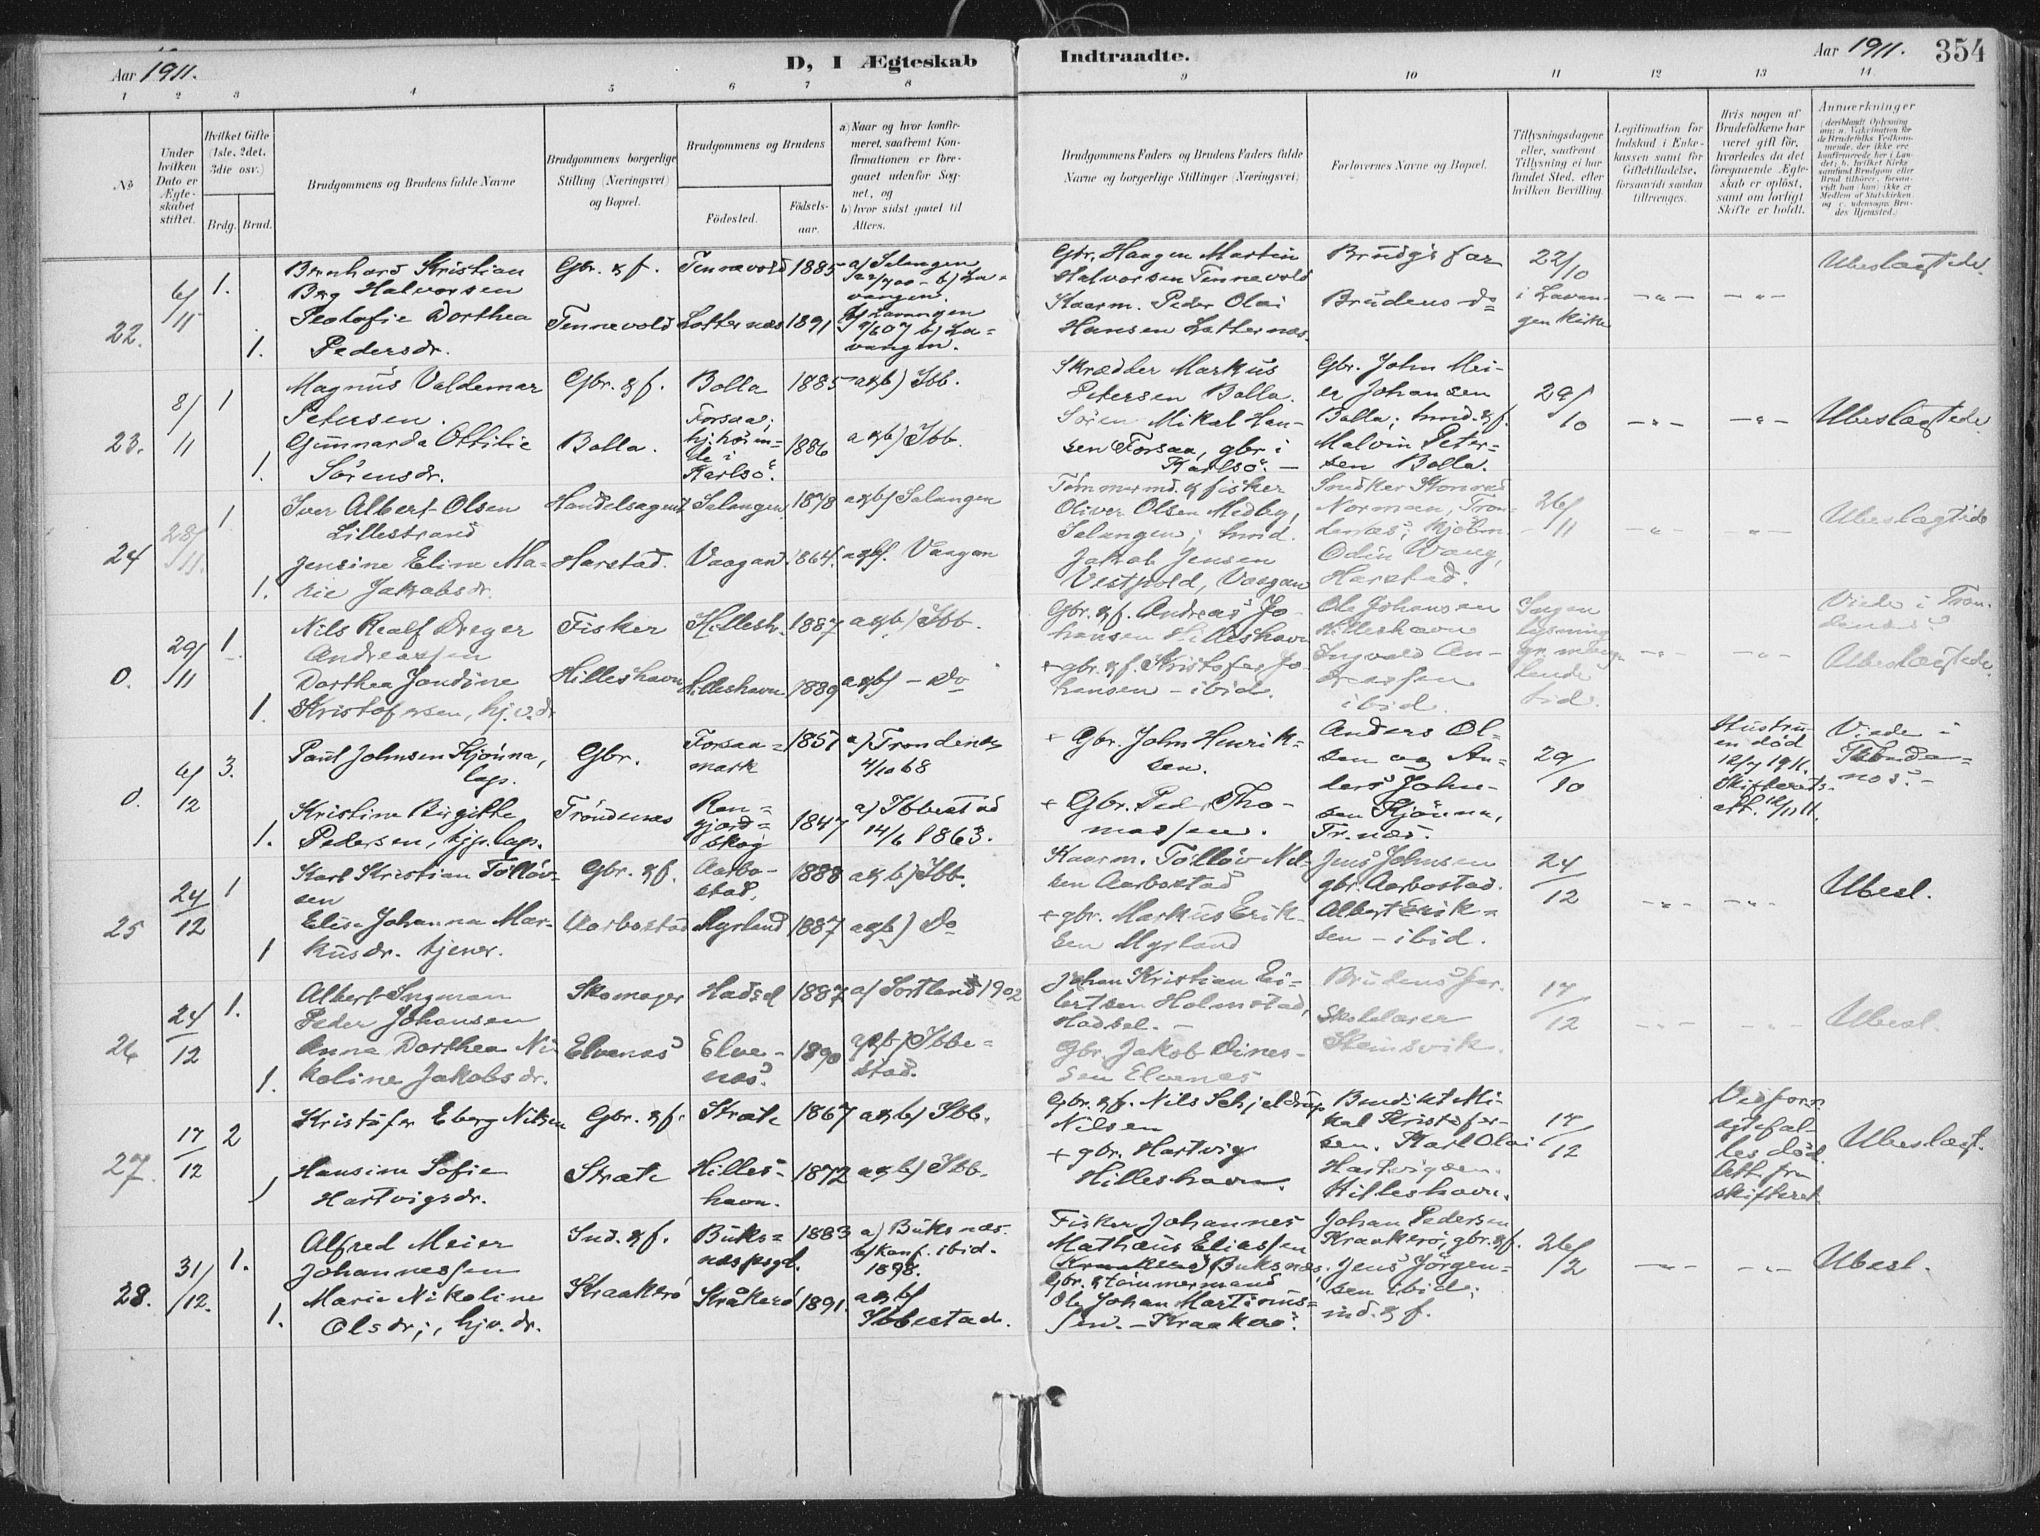 Aar 1911.
D, I Ægteskab Indtraadte.
Aar 1911.
354
1 2 3 4 5 6 7 8 9 10 11 12 13 14
No
Under hvilken Dato er Ægteskabet stiftet.
Hvilket Gifte (1ste, 2det, 3die osv.)
Brdg. Brud.
Brudgommens og Brudens fulde Navne
Brudgommens borgerlige Stilling (Næringsvei) og Bopæl.
Brudgommens og Brudens
Födested.
Födselsaar.
a) Naar og hvor konfirmeret, saafremt Konfirmationen er foregaaet udenfor Sognet, og
b) hvor sidst gaaet til Alters.
Brudgommens Faders og Brudens Faders fulde Navne og borgerlige Stillinger (Næringsvei)
Forlovernes Navne og Bopæl.
Tillysningsdagene eller, saafremt Tillysning ei har fundet Sted, efter hvilken Bevilling.
Legitimation for Indskud i Enkekassen samt for Giftetilladelse, forsaavidt saadan tiltrænges.
Hvis nogen af Brudefolkene har været gift för, hvorledes da det foregaaende Ægteskab er oplöst, samt om lovligt Skifte er holdt.
Anmærkninger
22.
6/11
1.
1.
Bernhard Kristian
Berg Halvorsen
Dorthea
Pedersdr.
Gbr. & f.
Tennevold
Tennevold
Lotternæs
1885
1891
a) Salangen
b) Lavangen.
Gbr. Haagen Martin
Halvorsen Tennevold
Kaarm. Peder Olai
Hansen Lotternæs.
Brudg's far
Brudens do
22/10
i Lavangen Kirke
Ubeslægtede.
23.
8/11
1
1.
Magnus Valdemar
Petersen.
Gunnarda Ottilie
Sörensdr.
Gbr. & f.
Bolla.
Bolla
Forsaa;
hj.hörende i
Karlsö.
1885
1886
a & b) Ibb.
a & b) Ibb.
Skrædder Markus
Petersen Bolla.
Sören Mikal Hansen Forsaa, gbr. i
Karlsö. –
Gbr. John Meier Johansen
Bolla; Ind. & f.
Malvin Petersen Bolla.
29/10
Ubeslægtede
24
28/11.
1
1.
Iver Albert Olsen
Lillestrand
Jensine Eline Marie Jakobsdr.
Handelsagent
Harstad.
Salangen
Vaagan
1878
1864.
a & b) Salangen
a & b. Vaagan
Tömmermd. & fisker
Oliver Olsen Midby,
Salangen; Ind.
Jakob Jensen
Vestpold, Vaagan
Snedker Konrad
Norman, Trondenæs; Kjöbm.
Odin Wang,
Harstad.
26/11
Ubeslægtede
0.
29/11
1
1.
Nils Realf Dreyer
Andreassen
Dorthea Jondine
Kristofersen, hj.v.dr
Fisker
Hilleshavn
Hillesh.
Hilleshavn
1887
1889
a & b) Ibb.
a & b) – Do
Gbr. & f. Andreas Johansen Hilleshavn
+ gbr. & f. Kristofer Johansen – ibid.
Ole Johansen
Hilleshavn
Ingvald Andreassen
ibid.
Ingen
lysning
gr. manglende
tid.
Viede i Trondenæs
Ubeslægtede.
0.
6/12
3.
1.
Paul Johnsen Kjönna,
lap.
Kristine Birgitte
Pedersen, lap.
Gbr.
Tröndenæs
Forsaamark
Rengjordskog
1857
1847
a) Trondenæs
4/10 68
a) Ibbestad
14/6 1863.
+ Gbr. John Henriksen.
+ Gbr. Peder Thomassen.
Anders Olsen og Anders Johnsen Kjönna,
Tr.næs.
29/10
Hustruen död
12/7 1911.
Skifteretsatt. 12/11 11.
Viede i
Trondenæs. –
25
24/12
1
1
Karl Kristian Tollövsen
Elise Johanna Markusdr. tjener.
Gbr. & f.
Aarbostad
Aarbostad,
Myrland
1888
1887
a & b) Ibb.
a & b) Do
Kaarm. Tollöv Nilsen Aarbostad
+ gbr. Markus Eriksen Myrland
Jens Johnsen
gbr. Aarbostad.
Albert Eriksen – ibid.
24/12
Ubesl.
26
24/12
1.
1.
Albert Ingman
Peder Johansen
Anna Dorthea Nikoline Jakobsdr.
Skomager
Elvenæs
Hadsel
Elvenæs.
1887
1890
a) Sortland 1902
a & b) Ibbestad.
Johan Kristian Eibertsen Holmstad,
Hadsel. –
Gbr. Jakob Dinessen Elvenes
Brudens far.
Skolelærer
Steinsvik.
17/12
Ubesl.
27.
17/12
2
1
Kristofer Eberg Nilsen
Hansine Sofie
Hartvigsdr.
Gbr. & f.
Stræte
Stræte
Hilleshavn.
1867
1872
a & b) Ibb.
a & b) Ibb.
Gbr. & f. Nils Schjeldrup
Nilsen
+ gbr. Hartvig
Hilleshavn.
Benedikt Mikal Kristofersen. Karl Olai
Hartvigsen.
Hilleshavn.
17/12
Ved forr.
ægtefælles död.
Att. fra
skifteret
Ubeslægt.
28.
31/12.
1.
1.
Alfred Meier
Johannessen
Marie Nikoline
Olsdr.;, hjv. dr.
Ind. & f.
Kraakerö
Buksnæs psgd.
Kråkerö
1883
1891.
a) Buksnæs.
b) konf. ibid.
1898.
a & b)
Ibbestad.
Fisker Johannes
Mathæus Eliassen
Buksnæs.
Gbr. & tömmermand
Ole Johan Martinussen. – Kraakerö.
Johan Pedersen
Kraakerö, gbr. & f.
Jens Jörgensen ibid;
ind. & f.
26/2
Ubesl.